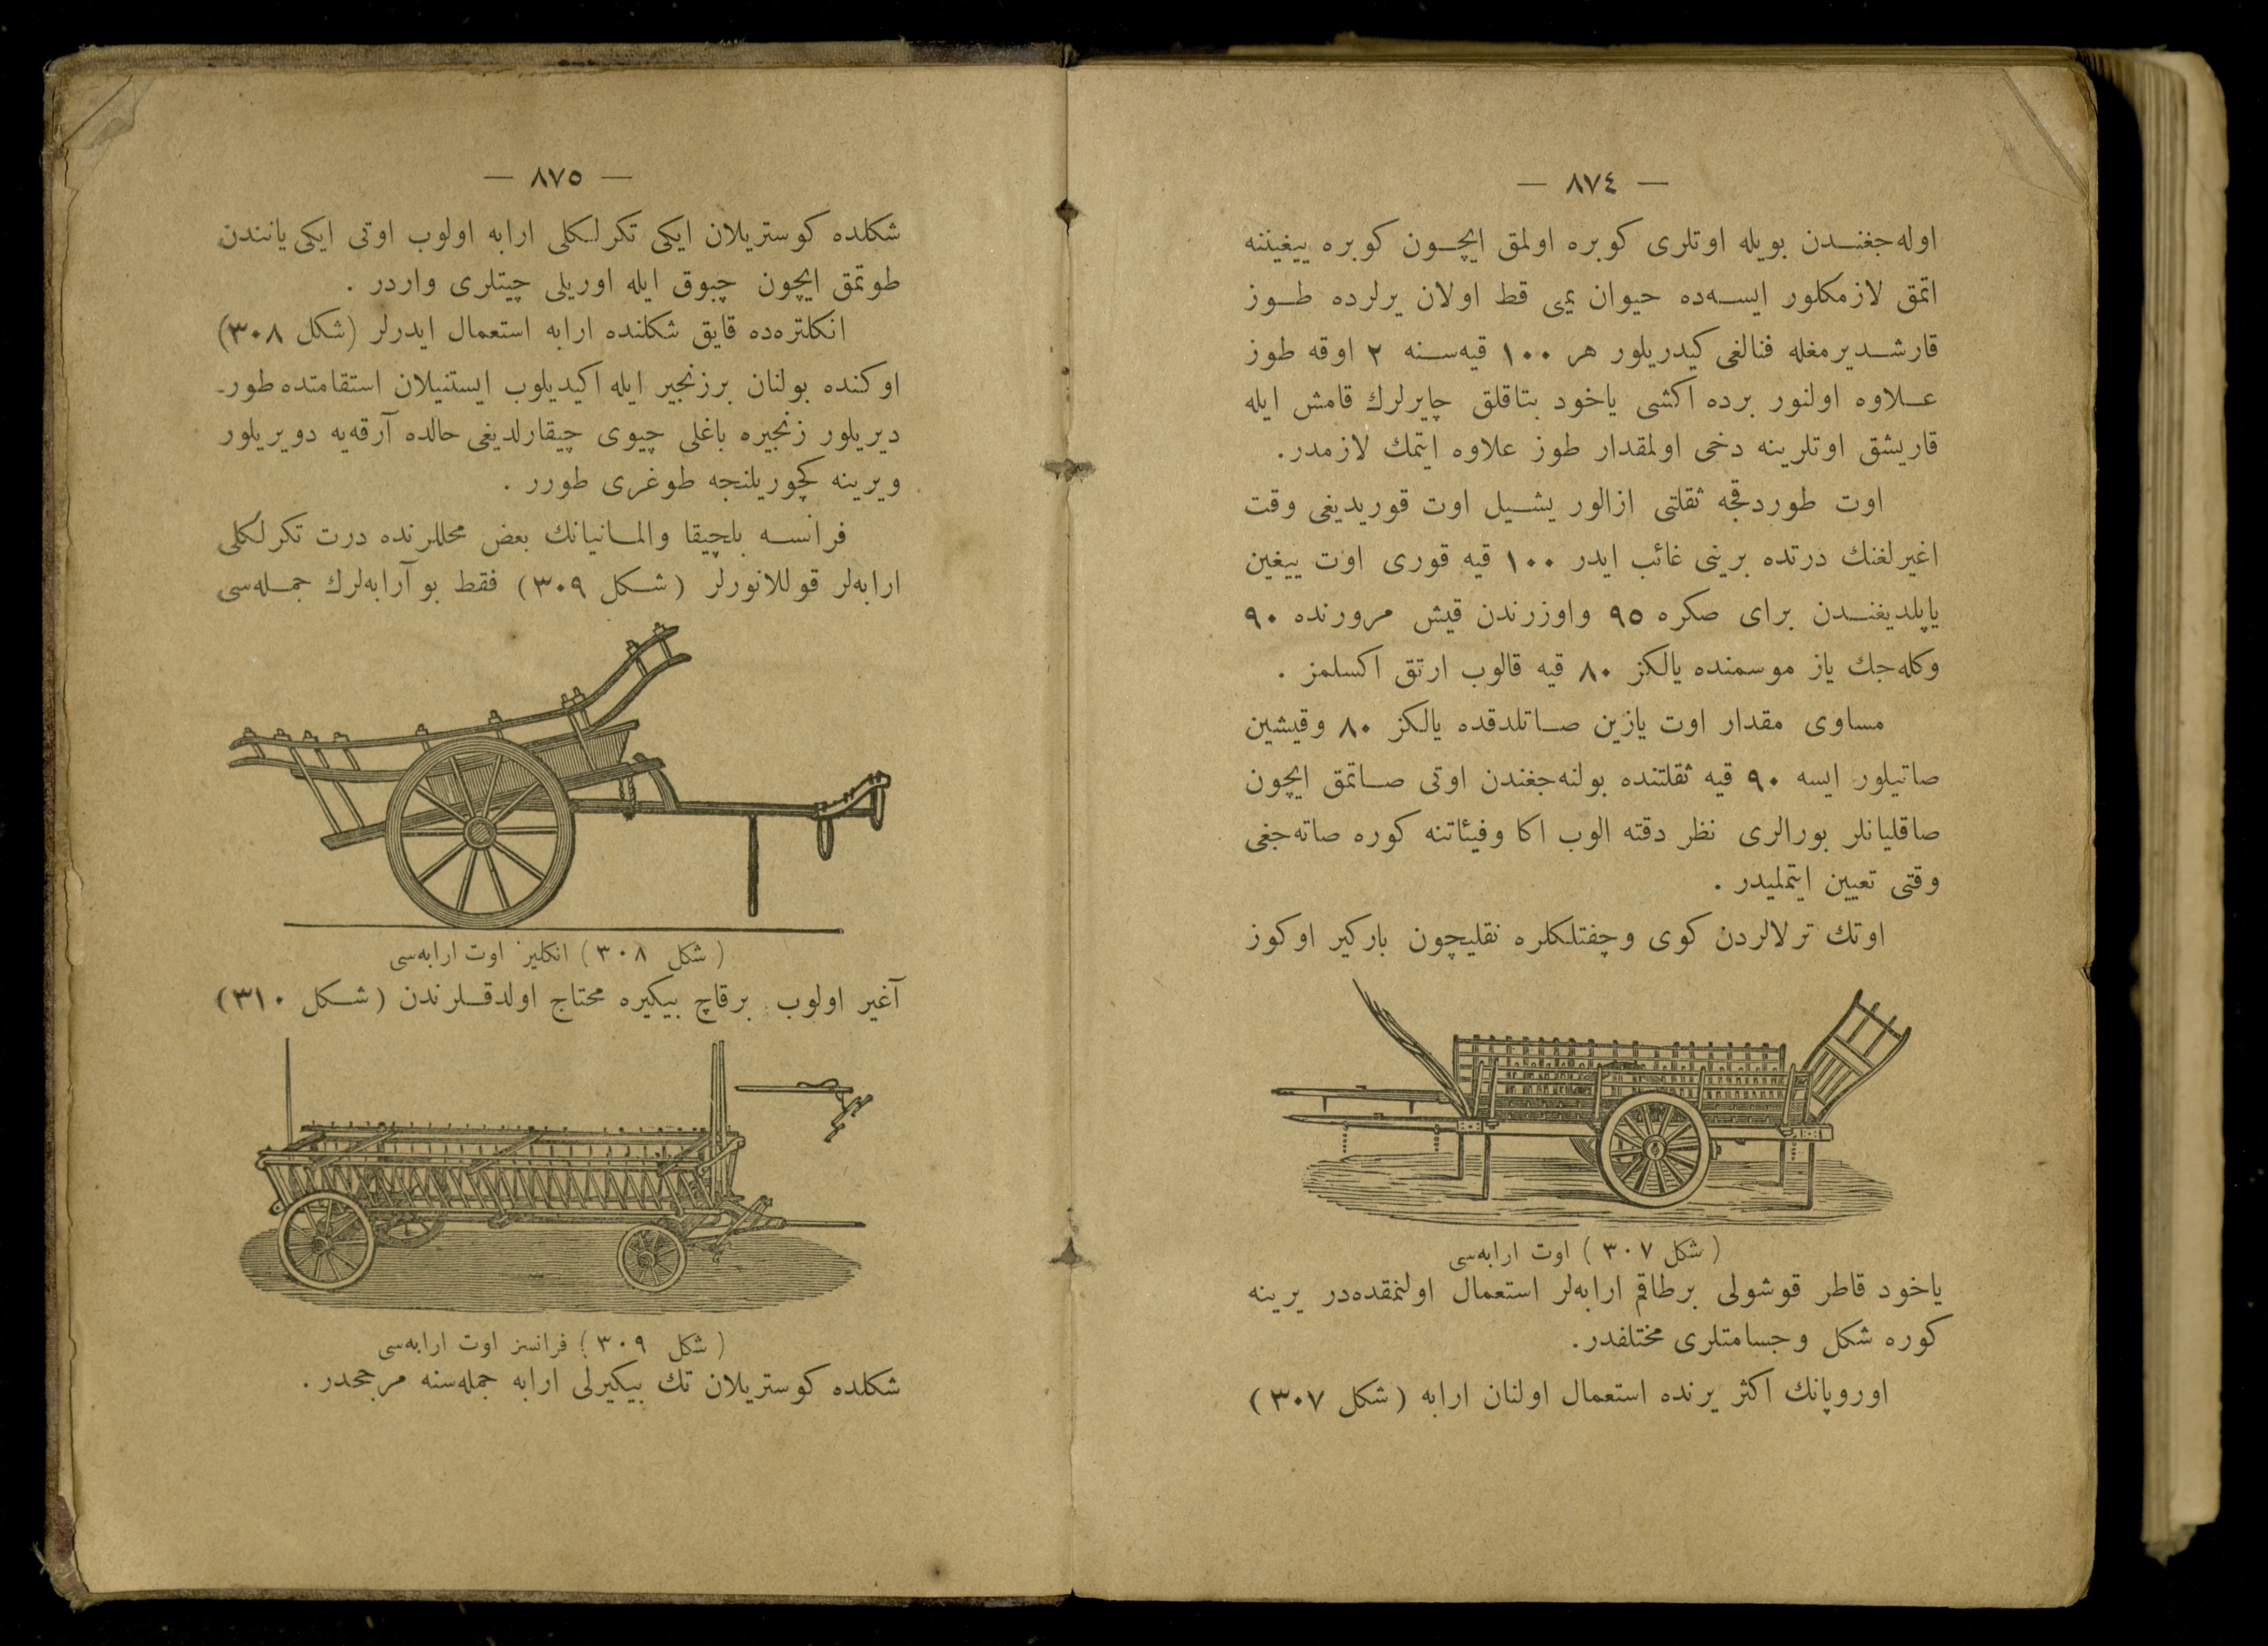 — ٨٧٤ —
اوله‌جغندن بويله اوتلرى كوبره اولمق ايچون كوبره ييغيننه
اتمق لازمكلور ايسه‌ده حيوان يمى قط اولان يرلرده طوز
قارشديرمغله فنالغى كيدريلور هر ١٠٠ قيه‌سنه ٢ اوقه طوز
علاوه اولنور برده اكشى ياخود بتاقلق چايرلرك قامش ايله
قاريشق اوتلرينه دخى اولمقدار طوز علاوه ايتمك لازمدر.
اوت طوردقجه ثقلتى ازالور يشيل اوت قوريديغى وقت
اغيرلغنك درتده برينى غائب ايدر ١٠٠ قيه قورى اوت ييغين
ياپلديغندن براى صكره ٩٥ واوزرندن قيش مرورنده ٩٠
وكله‌جك ياز موسمنده يالكز ٨٠ قيه قالوب ارتق اكسلمز .
مساوى مقدار اوت يازين صاتلدقده يالكز ٨٠ وقيشين
صاتيلور ايسه ٩٠ قيه ثقلتنده بولنه‌جغندن اوتى صاتمق ايچون
صاقليانلر بورالرى نظر دقته الوب اكا وفيئاتنه كوره صاته‌جغى
وقتى تعيين ايتمليدر .
اوتك ترلالردن كوى وچفتلكلره نقليچون باركير اوكوز
( شكل ٣٠٧ ) اوت ارابه‌سى
ياخود قاطر قوشولى برطاقم ارابه‌لر استعمال اولنمقده‌در يرينه
كوره شكل وجسامتلرى مختلفدر.
اوروپانك اكثر يرنده استعمال اولنان ارابه ( شكل ٣٠٧ )
— ٨٧٥ —
شكلده كوستريلان ايكى تكرلكلى ارابه اولوب اوتى ايكى يانندن
طوتمق ايچون چبوق ايله اوريلى چيتلرى واردر .
انكلتره‌ده قايق شكلنده ارابه استعمال ايدرلر (شكل ٣٠٨)
اوكنده بولنان برزنجير ايله اكيديلوب ايستنيلان استقامتده طور-
ديريلور زنجيره باغلى چيوى چيقارلديغى حالده آرقه‌يه دويريلور
ويرينه كچوريلنجه طوغرى طورر .
فرانسه بلچيقا والمانيانك بعض محللرنده درت تكرلكلى
ارابه‌لر قوللانورلر ( شكل ٣٠٩ ) فقط بو آرابه‌لرك جمله‌سى
( شكل ٣٠٨ ) انكليز اوت ارابه‌سى
آغير اولوب برقاچ بيكيره محتاج اولدقلرندن ( شكل ٣١٠ )
( شكل ٣٠٩ ) فرانسز اوت ارابه‌سى
شكلده كوستريلان تك بيكيرلى ارابه جمله‌سنه مرجحدر .